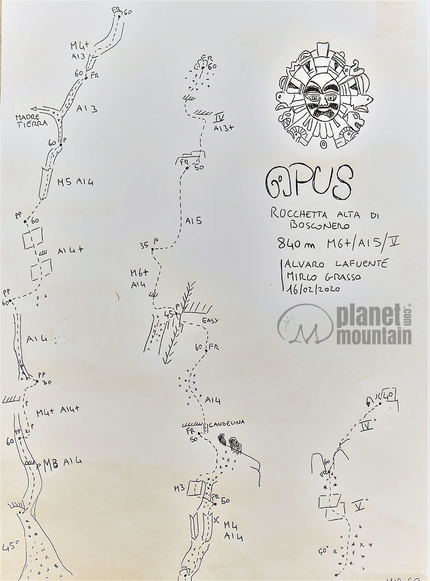 FR 60
M4+
A13
60 FR
A13
MADRE
TIERRA
60 P
M5 A14
PP
60
A14+
PP
60
A14
PP
30
M4+ A14+
FR
60
M3 A14
45°
FR
60
IV
A13+
FR
50
A15
35 P
M6+
A14
45 P
EASY
60 FR
A14
FR
50
CANDELINA
M3
FR
50
M4
A14
OPUS
ROCCHETTA ALTA DI
BOSCONERO
840m M6+/A15/V
ALVARO LAFUENTE
MIRCO GRASSO
16/02/2020
planet
mountain
.com
40
IV
60
V
50°